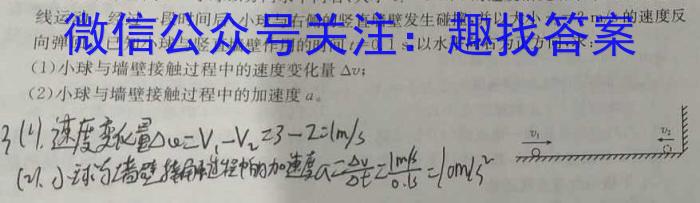 线运动,经过一段时间后,小球与右侧竖直墙壁发生碰撞,并以大小 m/s的速度反
微信公众号关注：趣找答案
向弹 小球与竖直墙壁作用的时间 0.1 s,以水平向右为正方向,求：
(1)小球与墙壁接触过程中的速度变化量 Δv;
(2)小球与墙壁接触过程中的加速度 a。
3 (1). 速度变化量Δv=V₁-V₂=3-2=1m/s
(2). 小球与墙壁接触过程中的加速度a=Δv/Δt=1m/s/0.1s=10m/s²
v₁ v₂